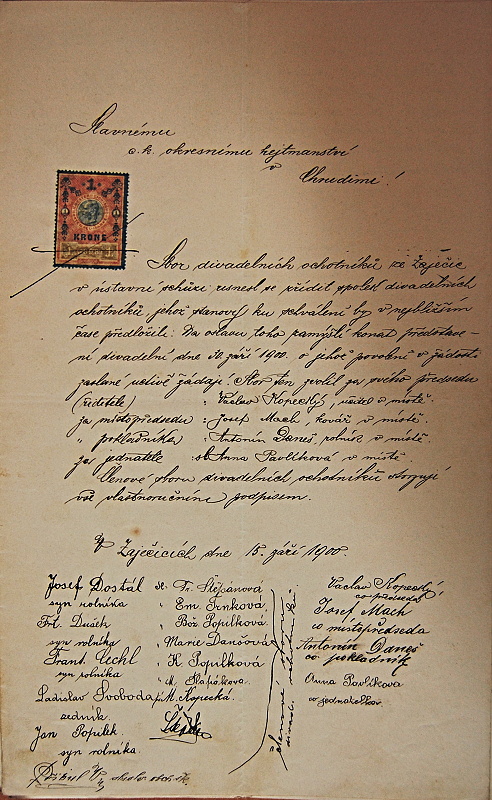 Slavnému
c.k. okresnímu hejtmanství
v
Chrudimi!
1
KRONE
Sbor divadelních ochotníků ze Zaječic
v ústavní schůzi usnesl se zříditi spolek divadelních
ochotníků, jehož stanovy ku schválení by v nejbližším
čase předložili. Na oslavu toho zamýšlí konat představe-
ní divadelní dne 30. září 1900. o jehož povolení v žádosti
zaslané uctivě žádají. Sbor ten zvolil za svého předsedu
(ředitele) : Václav Kopecký, učitel v místě.
za místopředsedu : Josef Mach, kovář v místě.
" pokladníka : Antonín Daneš, rolník v místě.
za jednatele : sl. Anna Pavlíková v místě.
Členové sboru divadelních ochotníků stvrzují
vše vlastnoručním podpisem.
V Zaječicích dne 15. září 1900.
Josef Dostál
syn rolníka
Frt. Dušek
syn rolníka
Frant. Lechl
syn rolníka
Ladislav Svoboda
zedník.
Jan Popílek
syn rolníka.
sl. Fr. Štěpánová
" Em Trnková
" Bož. Popílková
" Marie Danšová
" K. Popílková
" M. Kopecká
členové sboru
divad. ochotníků
Václav Kopecký,
co předseda
Josef Mach
co místopředseda
Antonín Daneš
co pokladník
Anna Pavlíková
co jednatelka.